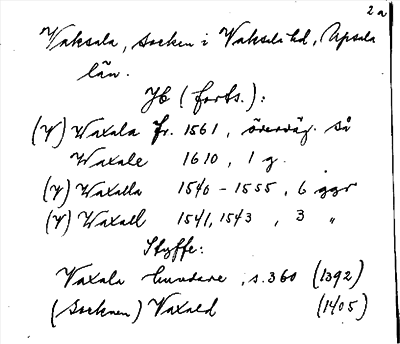 2 a
Vaksala, socken i Vaksala hd, Upsala
län.
Jb (forts.):
(V) Waxala fr. 1561, överväg. så
Waxale 1610, 1 g.
(V) Waxalla 1540-1555, 6 ggr
(V) Waxall 1541, 1543, 3 "
Styffe:
Vaxala hundare, s. 360 (1392)
(Socknen) Vaxald (1405)